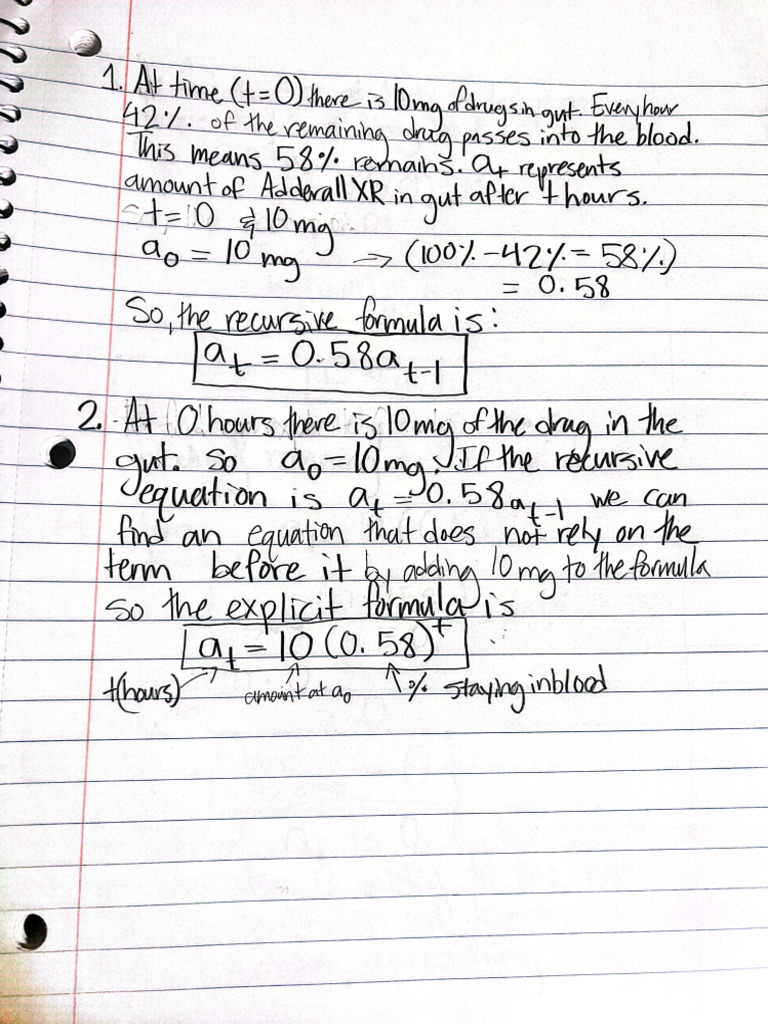 1. At time (t=0) there is 10mg of drugs in gut. Every hour
42% of the remaining drug passes into the blood.
This means 58% remains. at represents
amount of Adderall XR in gut after t hours.
t=0 & 10 mg
a0 = 10 mg → (100% - 42% = 58%)
= 0.58
So, the recursive formula is:
at = 0.58at-1
2. At 0 hours there is 10mg of the drug in the
gut. So a0 = 10mg. If the recursive
equation is at = 0.58at-1 we can
find an equation that does not rely on the
term before it by adding 10mg to the formula
so the explicit formula is
at = 10 (0.58)^t
t(hours) amount at a0 % staying in blood